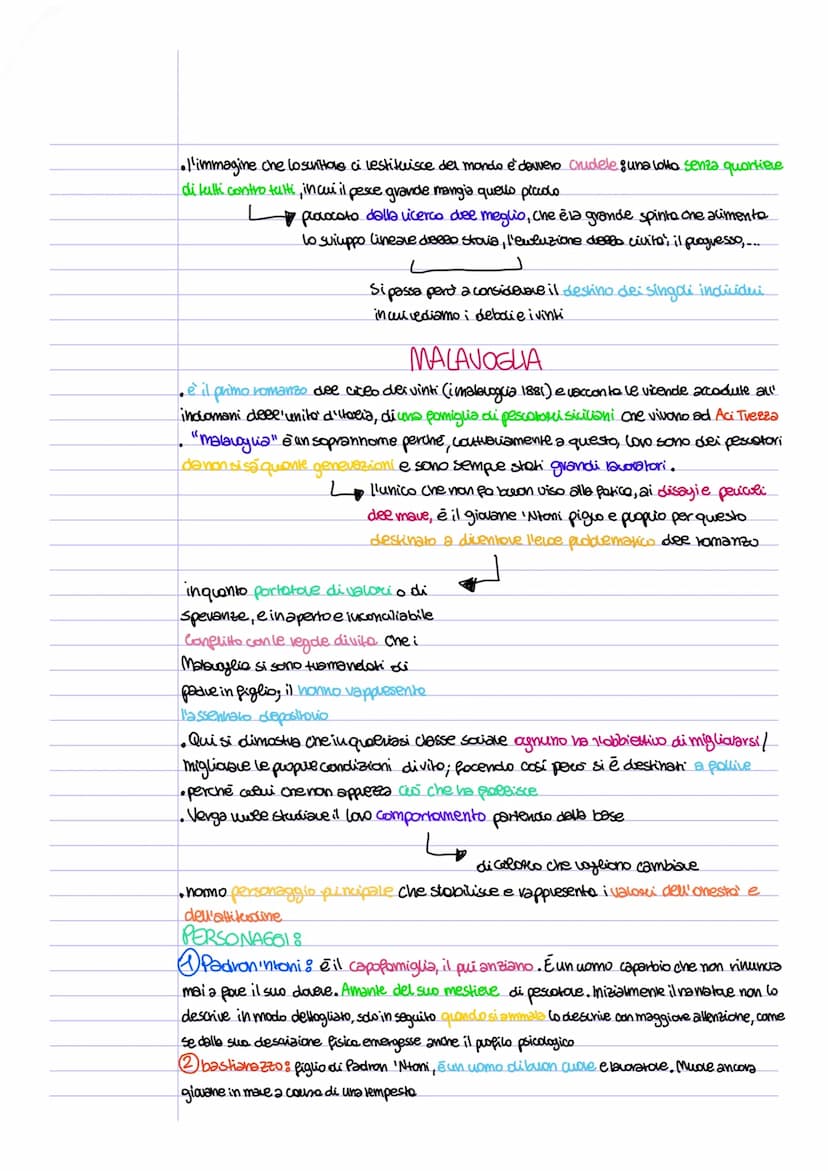 . l'immagine che lo scrittore ci restituisce del mondo è davvero crudele: una lotta senza quartiere
di tutti contro tutti, in cui il pesce grande mangia quello piccolo
provocato dalla ricerca del meglio, che è la grande spinta che alimenta
lo sviluppo lineare della storia, l'evoluzione della civiltà, il progresso,...
Si passa però a considerare il destino dei singoli individui
in cui vediamo i deboli e i vinti
MALAVOGLIA
. è il primo romanzo del ciclo dei vinti (i malavoglia 1881) e racconta le vicende accadute all'
indomani dell'unità d'Italia, di una famiglia di pescatori siciliani che vivono ad Aci Trezza
. "Malavoglia" è un soprannome perché, contrariamente a questo, loro sono dei pescatori
da non si sà quante generazioni e sono sempre stati grandi lavoratori.
l'unico che non fa buon viso alla fatica, ai disagi e pericoli
del mare, è il giovane 'Ntoni figlio e proprio per questo
destinato a diventare l'eroe problematico del romanzo
in quanto portatore di valori o di
speranze, e in aperto e inconciliabile
conflitto con le regole di vita che i
Malavoglia si sono tramandati di
padre in figlio; il nonno rappresenta
l'assennato depositario
. Qui si dimostra che in qualsiasi classe sociale ognuno ha l'obbiettivo di migliorarsi/
migliorare le proprie condizioni di vita; facendo così però si è destinati a fallire
. perché colui che non apprezza ciò che ha fallisce
. Verga vuole studiare il loro comportamento partendo dalla base
di coloro che vogliono cambiare
. nonno personaggio principale che stabilisce e rappresenta i valori dell'onestà e
PERSONAGGI:
1 Padron 'ntoni: è il capofamiglia, il più anziano. È un uomo caparbio che non rinuncia
mai a fare il suo dovere. Amante del suo mestiere di pescatore. Inizialmente il narratore non lo
descrive in modo dettagliato, solo in seguito quando si ammala lo descrive con maggiore attenzione, come
se dalla sua descrizione fisica emergesse anche il profilo psicologico
2 bastianazzo: figlio di Padron 'Ntoni, è un uomo di buon cuore e lavoratore. Muore ancora
giovane in mare a causa di una tempesta